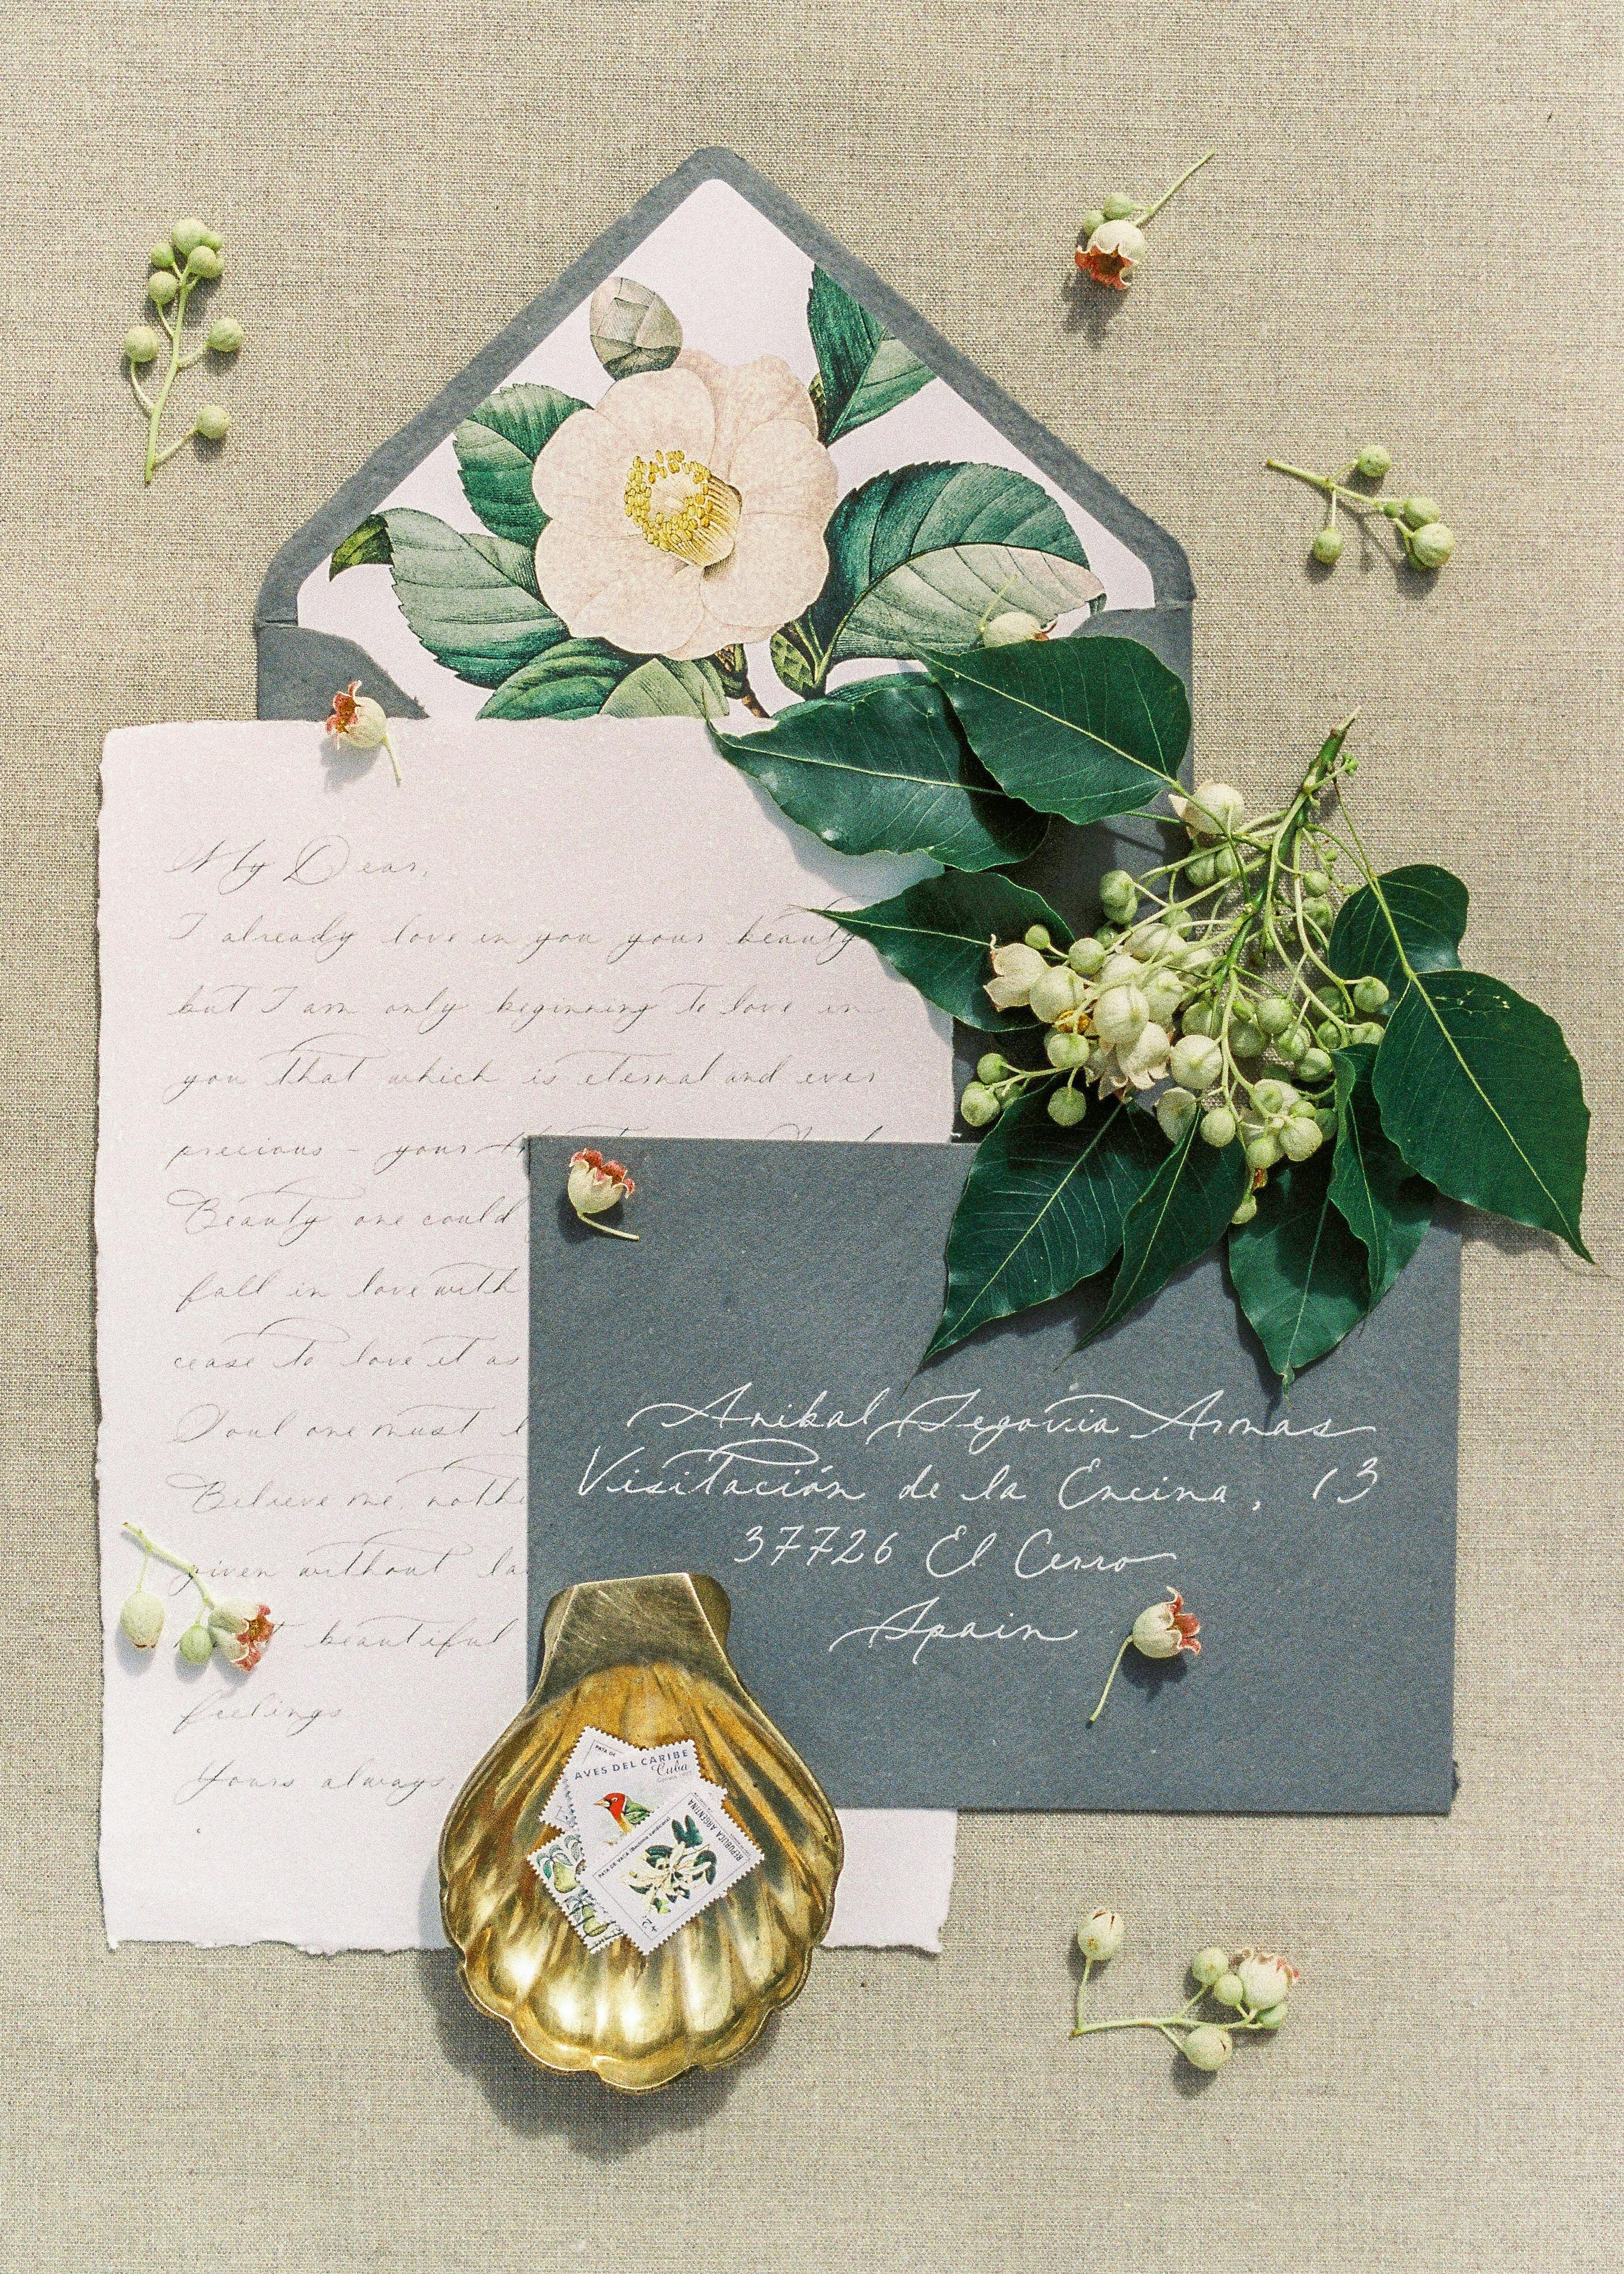 My Dear,
I already love in you your beauty
but I am only beginning to love in
you that which is eternal and ever
precious – your
Beauty one could
fall in love with
cease to love it as
Soul one must
Believe me,
given without
beautiful
feelings
Yours always,
Anibal Segovia Armas
Visitación de la Encina, 13
37726 El Cerro
Spain
AVES DEL CARIBE
Cuba
REPUBLICA ARGENTINA
PATA DE VACA